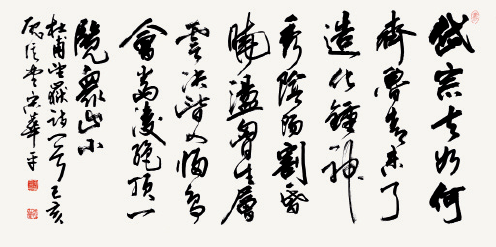 岱宗夫如何
齊魯青未了
造化鍾神
秀陰陽割昏
曉盪胷生層
雲決眥入歸鳥
會當凌絕頂一
覽眾山小
杜甫望嶽詩一首己亥
宋華平